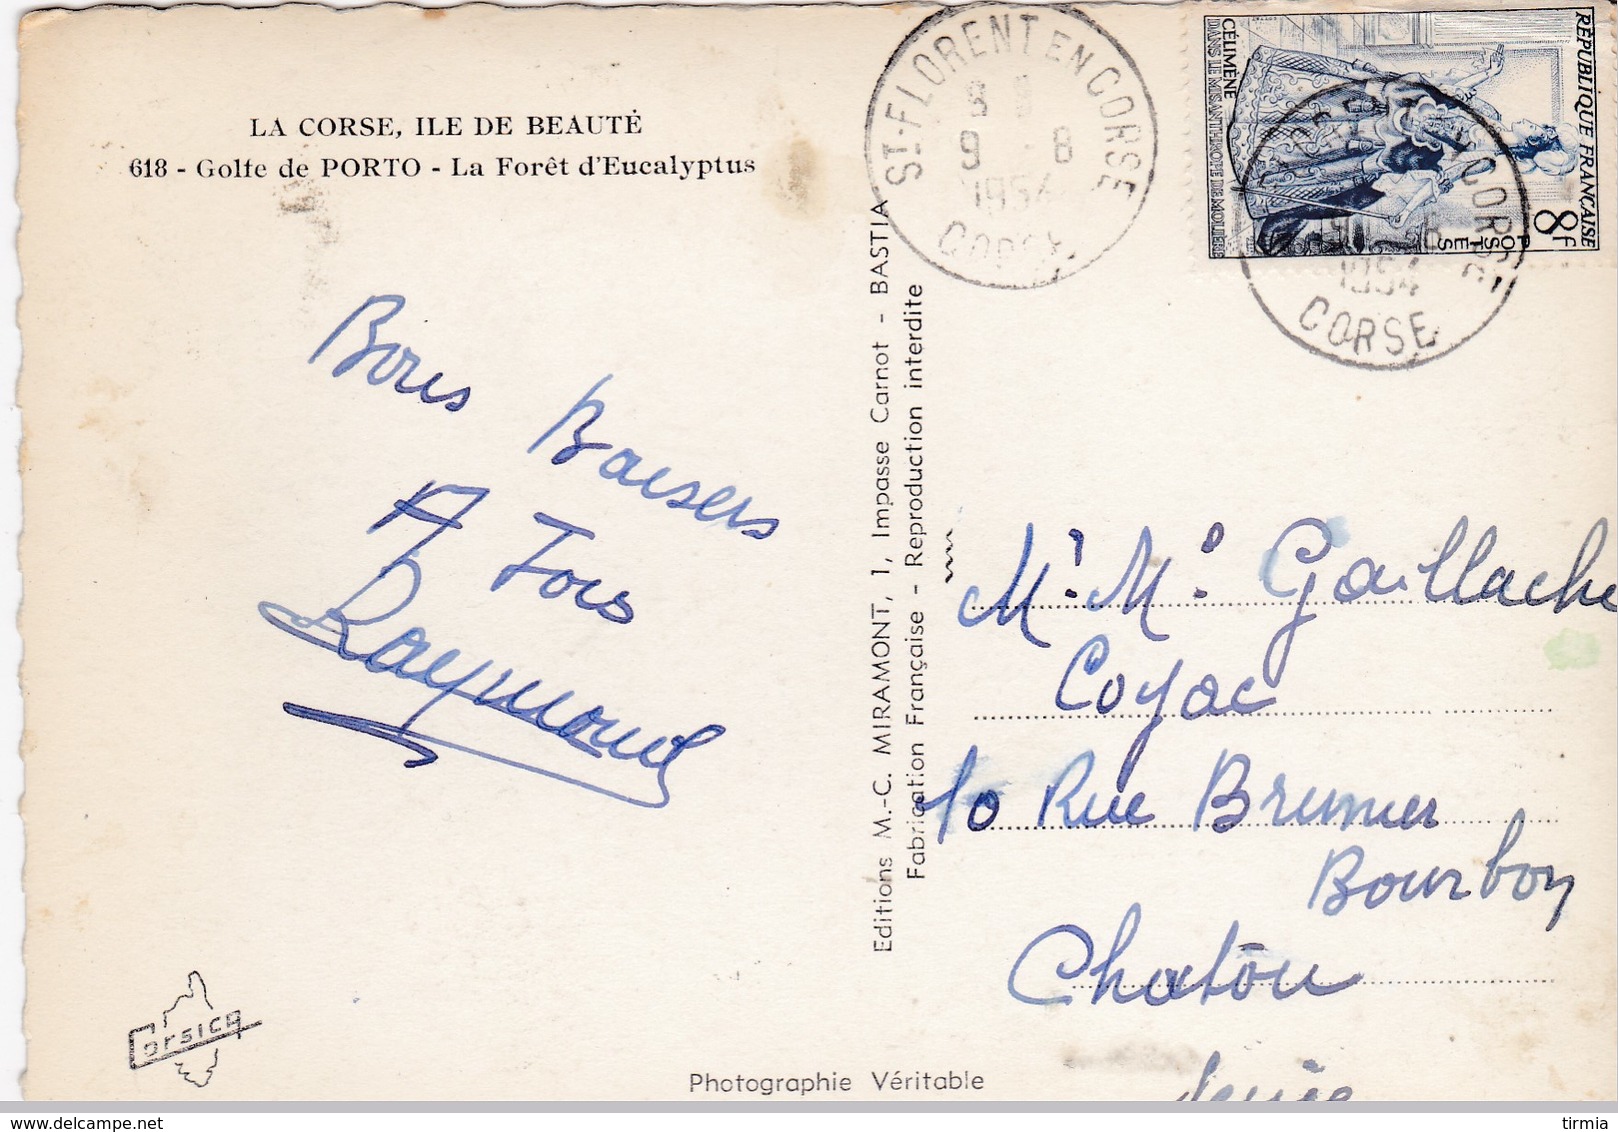 LA CORSE, ILE DE BEAUTÉ
618 - Golfe de PORTO - La Forêt d'Eucalyptus
Bons Baisers
A Tous
Raymond
Corsica
Editions M.-C. MIRAMONT, 1, Impasse Carnot - BASTIA
Fabrication Française - Reproduction interdite
Photographie Véritable
ST-FLORENT EN CORSE
9 8
1954
CORSE
RÉPUBLIQUE FRANÇAISE
8F
POSTES
CÉLIMÈNE
DANS LE MISANTHROPE DE MOLIÈRE
1954
CORSE
Mr. Me. Gaillache
Coyac
10 Rue Brumer
Bourbon
Chatou
delcampe.net
tirmia